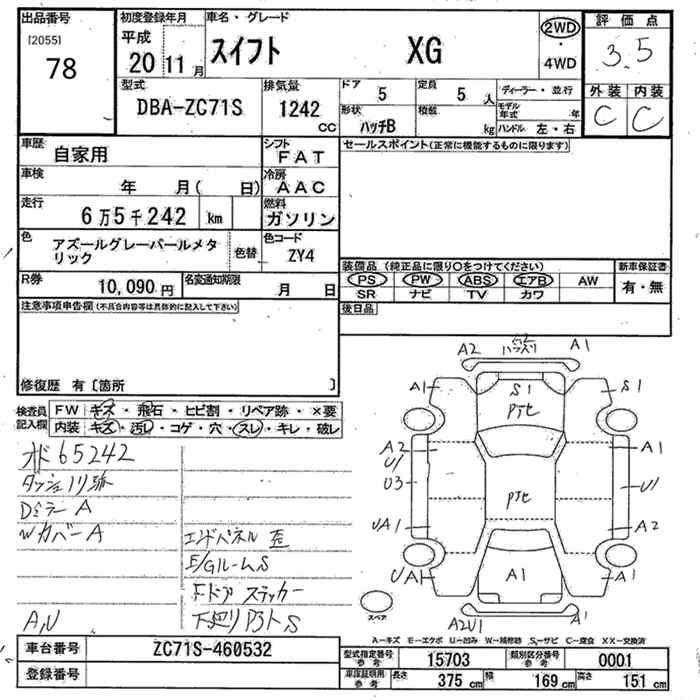 出品番号 初度登録年月 車名・グレード 評価点
[2055] 78
平成 20 11月
スイフト XG
2WD ・ 4WD
3.5
型式 排気量 ドア 5 定員 5人 ディーラー・並行
外装 内装
DBA-ZC71S 1242 CC
形状 ハッチB 積載 kg
モデル年式 年
ハンドル 左・右
C C
車歴 自家用 シフト FAT
セールスポイント(正常に機能するものに限ります)
車検 年 月( 日) 冷房 AAC
走行 6万5千242 km 燃料 ガソリン
色 アズールグレーパールメタリック 色替 色コード ZY4
装備品(純正品に限り○をつけてください) 新車保証書
R券 10,090円 名変通知期限 月 日
PS PW ABS エアB AW 有・無
SR ナビ TV カワ
注意事項申告欄(不具合内容等は具体的に記入して下さい)
後日品
修復歴 有〔箇所 〕
検査員記入欄
FW キズ・飛石・ヒビ割・リペア跡・×要
内装 キズ・汚レ・コゲ・穴・スレ・キレ・破レ
65242
ダッシュノリ跡
Dミラー A
Wカバー A
エンドパネル 歪
E/Gルーム S
Fドア ステッカー
A,U
下廻り P3ト S
A2 A1
A1 S1 S1
Pアセ
A2 A1
U1
U3 U1
Pアセ
UA1 A2
UA1 A1 A1
A2U1 A1
スペア
A-キズ E-エクボ U-凹み W-補修跡 S-サビ C-腐食 XX-交換済
車台番号 ZC71S-460532
型式指定番号 参考 15703 類別区分番号 参考 0001
登録番号
車庫証明用 参考 長さ 375 cm 幅 169 cm 高さ 151 cm